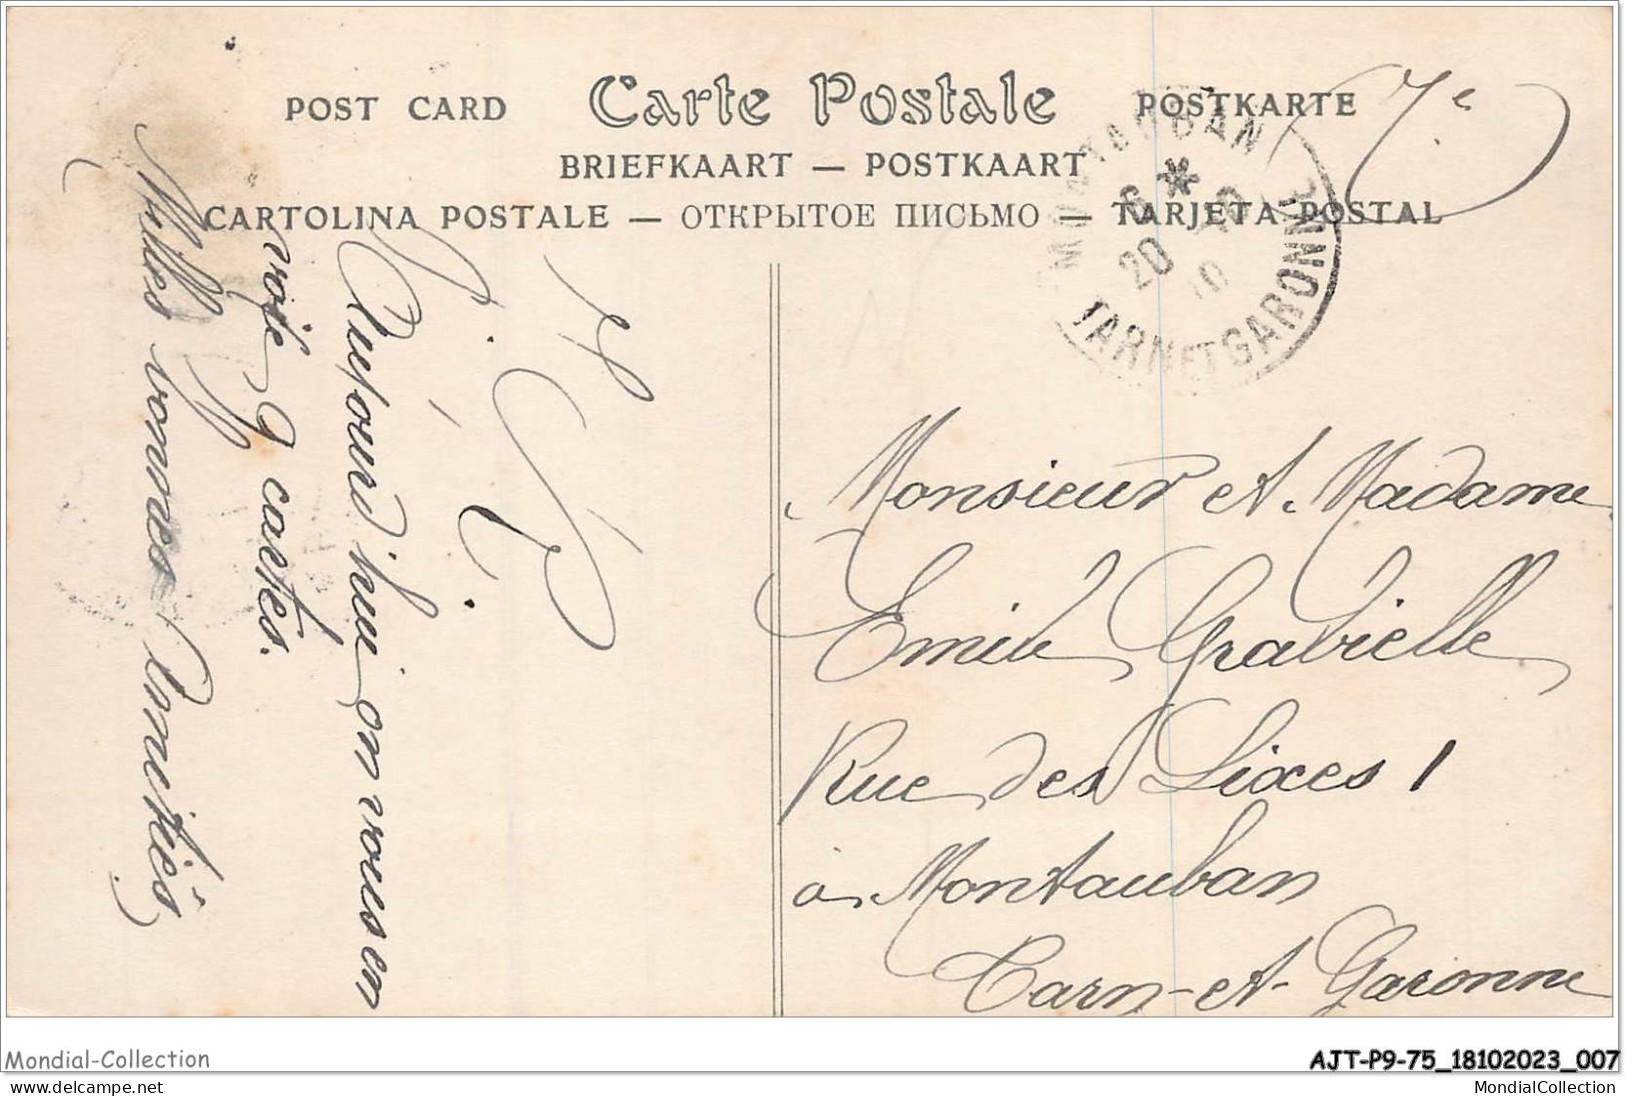 POST CARD Carte Postale POSTKARTE
BRIEFKAART — POSTKAART
CARTOLINA POSTALE — ОТКРЫТОЕ ПИСЬМО — TARJETA POSTAL
7e
MONTAUBAN
6 * 10
20 10
TARN ET GARONNE
Monsieur et Madame
Emile Gravielle
Rue des Lixes 1
à Montauban
Tarn-et-Garonne
P. S.
Aujourd'hui on vous en
voie 9 cartes.
Milles bonnes Amitiés
Mondial-Collection
AJT-P9-75_18102023_007
www.delcampe.net
MondialCollection